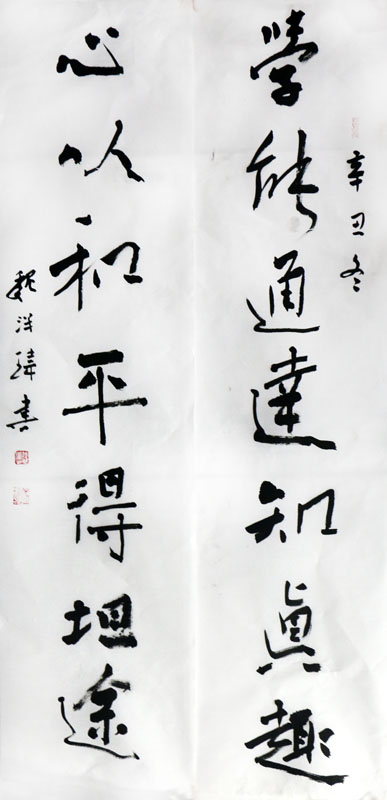 學能通達知真趣
辛丑冬
心以和平得坦途
魏洋璋書